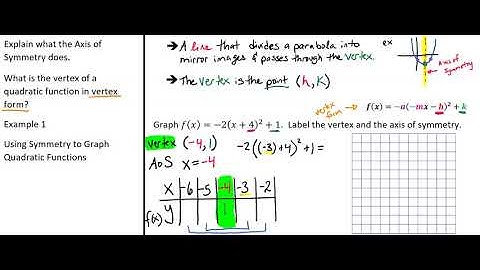 Explain what the Axis of
Symmetry does.
What is the vertex of a
quadratic function in vertex
form?
Example 1
Using Symmetry to Graph
Quadratic Functions
→ A line that divides a parabola into
mirror images & passes through the vertex.
→ The vertex is the point (h, K)
ex
Axis of
Symmetry
vertex
form → f(x) = -a(-mx - h)² + k
Graph f(x) = -2(x + 4)² + 1. Label the vertex and the axis of symmetry.
vertex (-4, 1)
AoS x = -4
-2((-3)+4)² + 1 =
x -6 -5 -4 -3 -2
f(x) y 1